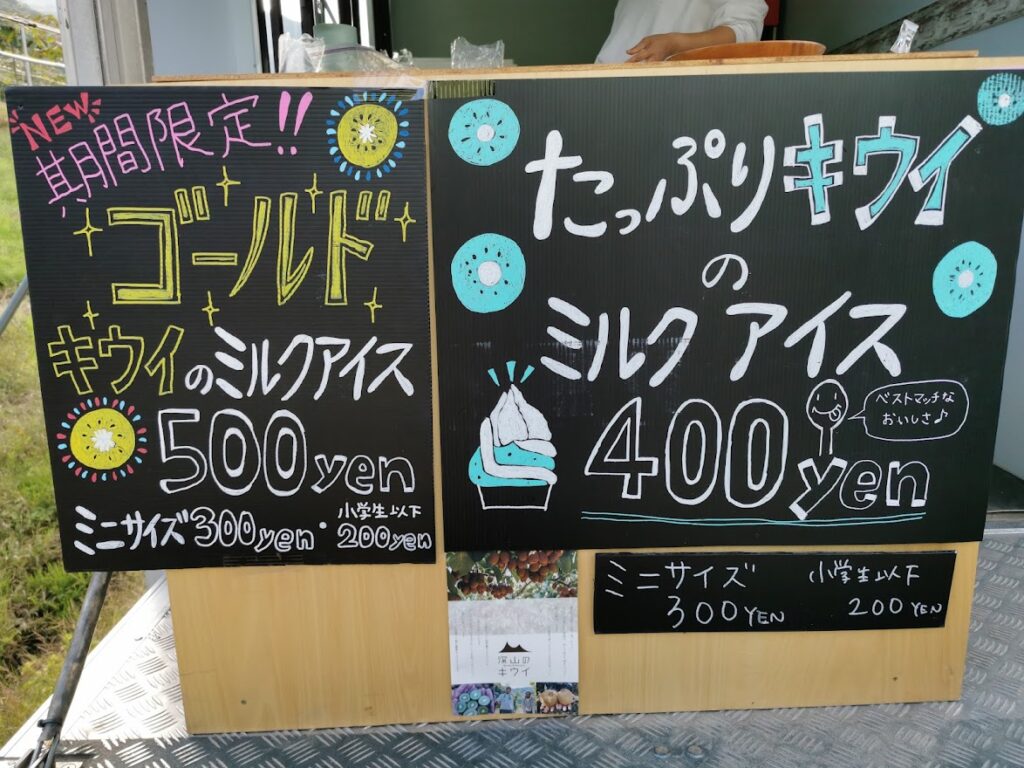 NEW
期間限定!!
ゴールド
キウイのミルクアイス
500yen
ミニサイズ300yen・小学生以下200yen
たっぷりキウイ
の
ミルクアイス
400yen
ベストマッチな
おいしさ♪
ミニサイズ 小学生以下
300YEN 200YEN
深山の
キウイ